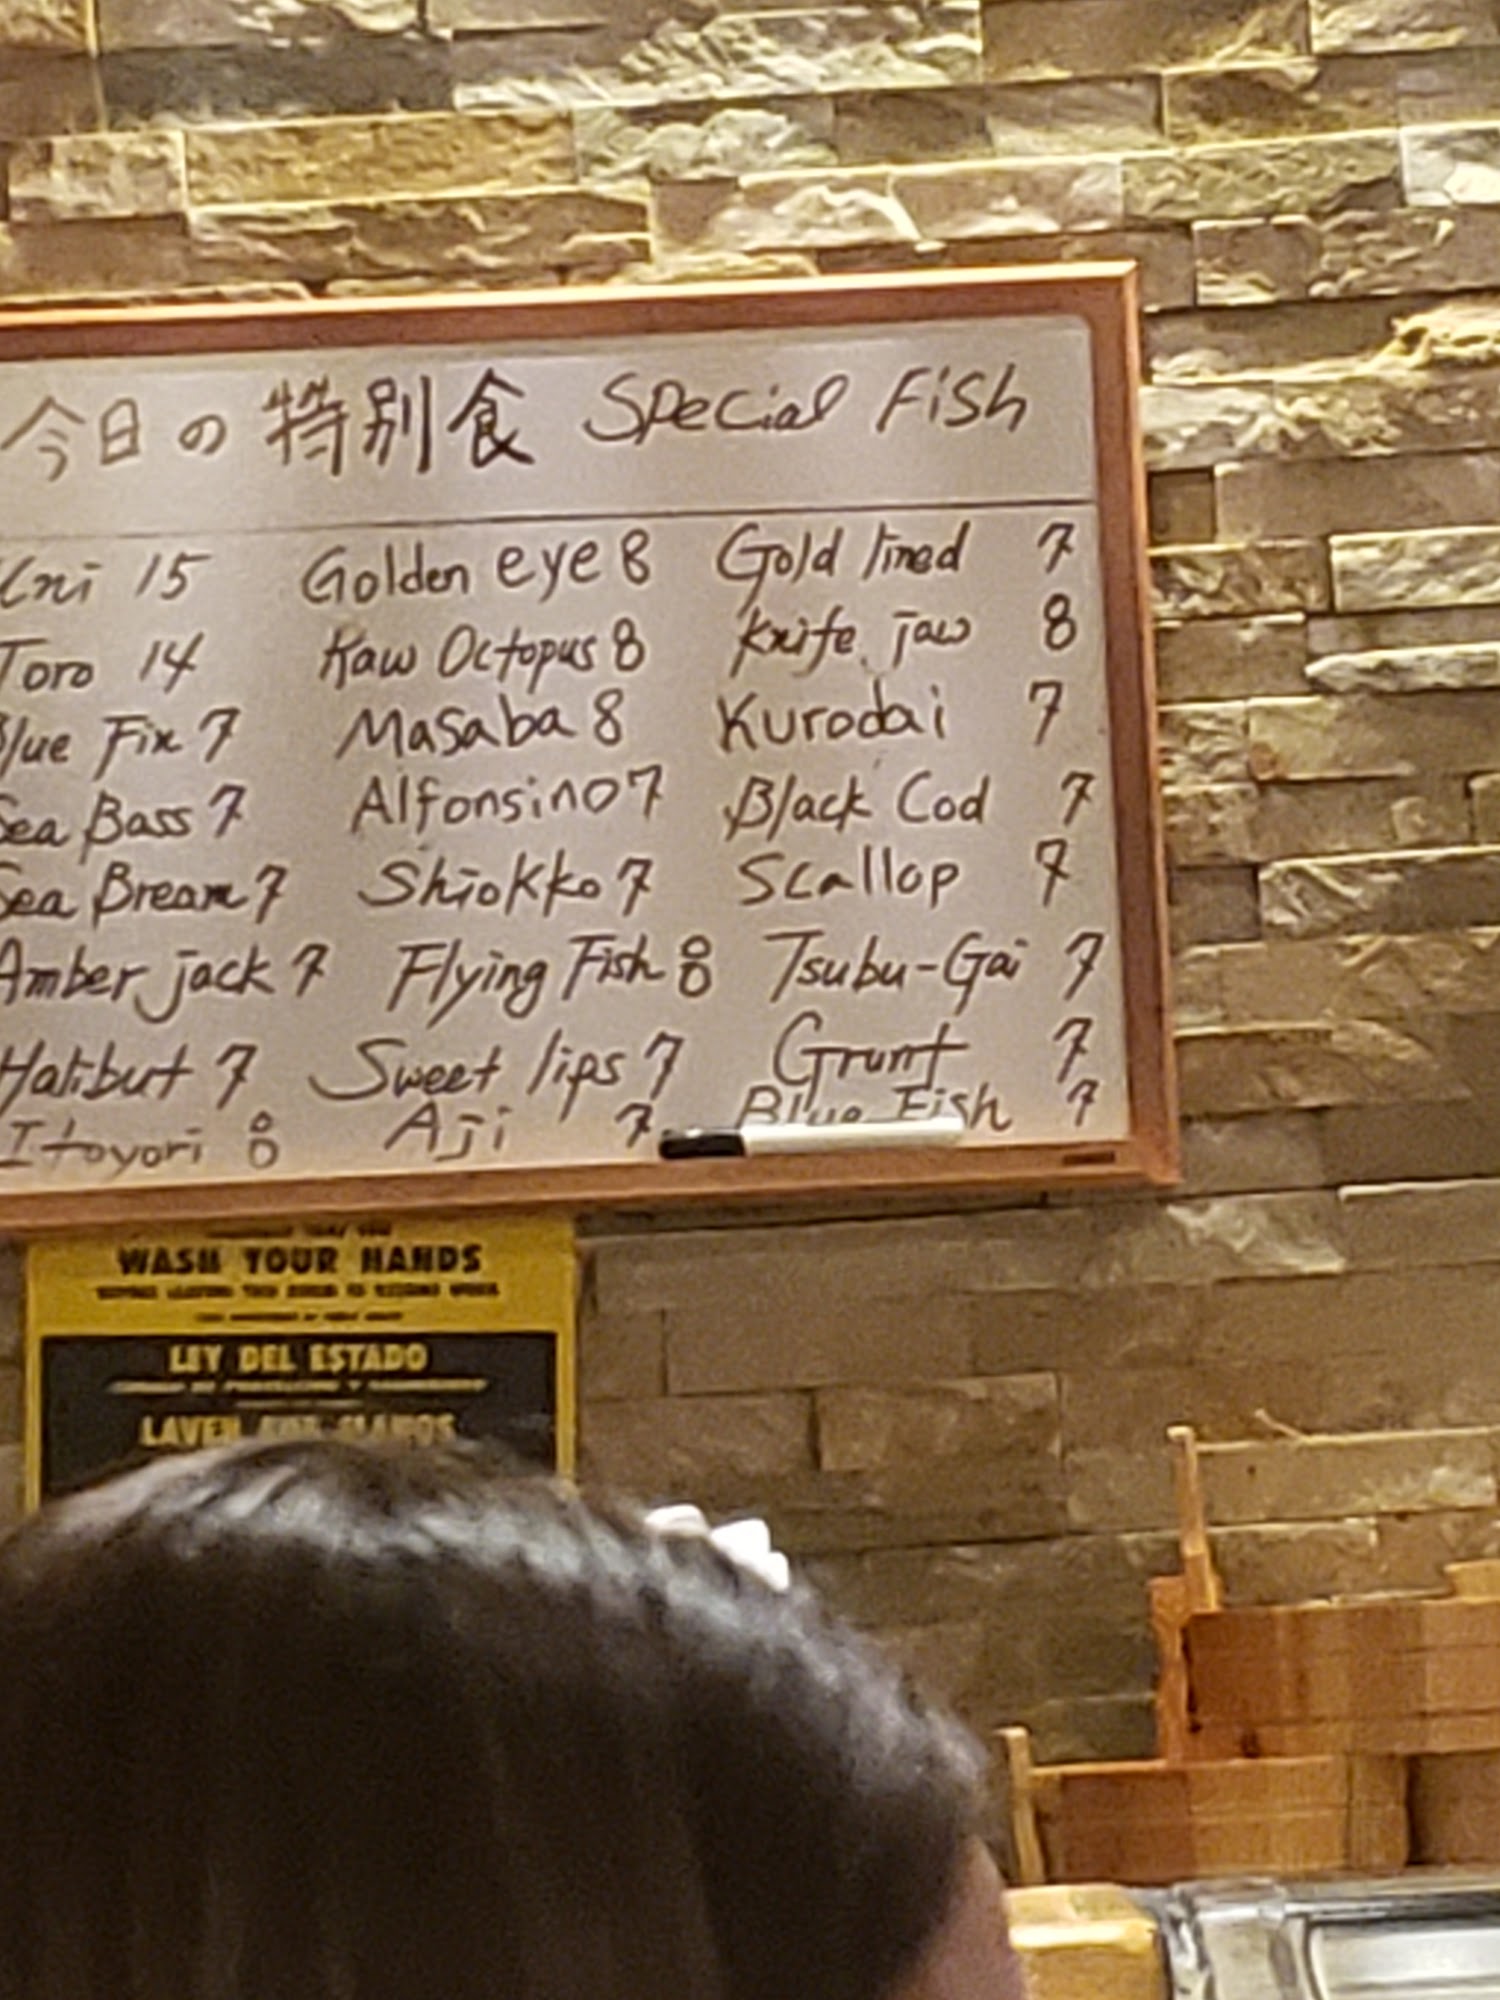 今日の特別食 Special Fish
Uni 15 Golden eye 8 Gold lined 7
Toro 14 Raw Octopus 8 Knife jaw 8
Blue Fin 7 Masaba 8 Kurodai 7
Sea Bass 7 Alfonsino 7 Black Cod 7
Sea Bream 7 Shiokko 7 Scallop 7
Amber jack 7 Flying Fish 8 Tsubu-Gai 7
Halibut 7 Sweet lips 7 Grunt 7
Itoyori 8 Aji 7 Blue Fish 7
WASH YOUR HANDS
LEY DEL ESTADO
LAVEN MANOS